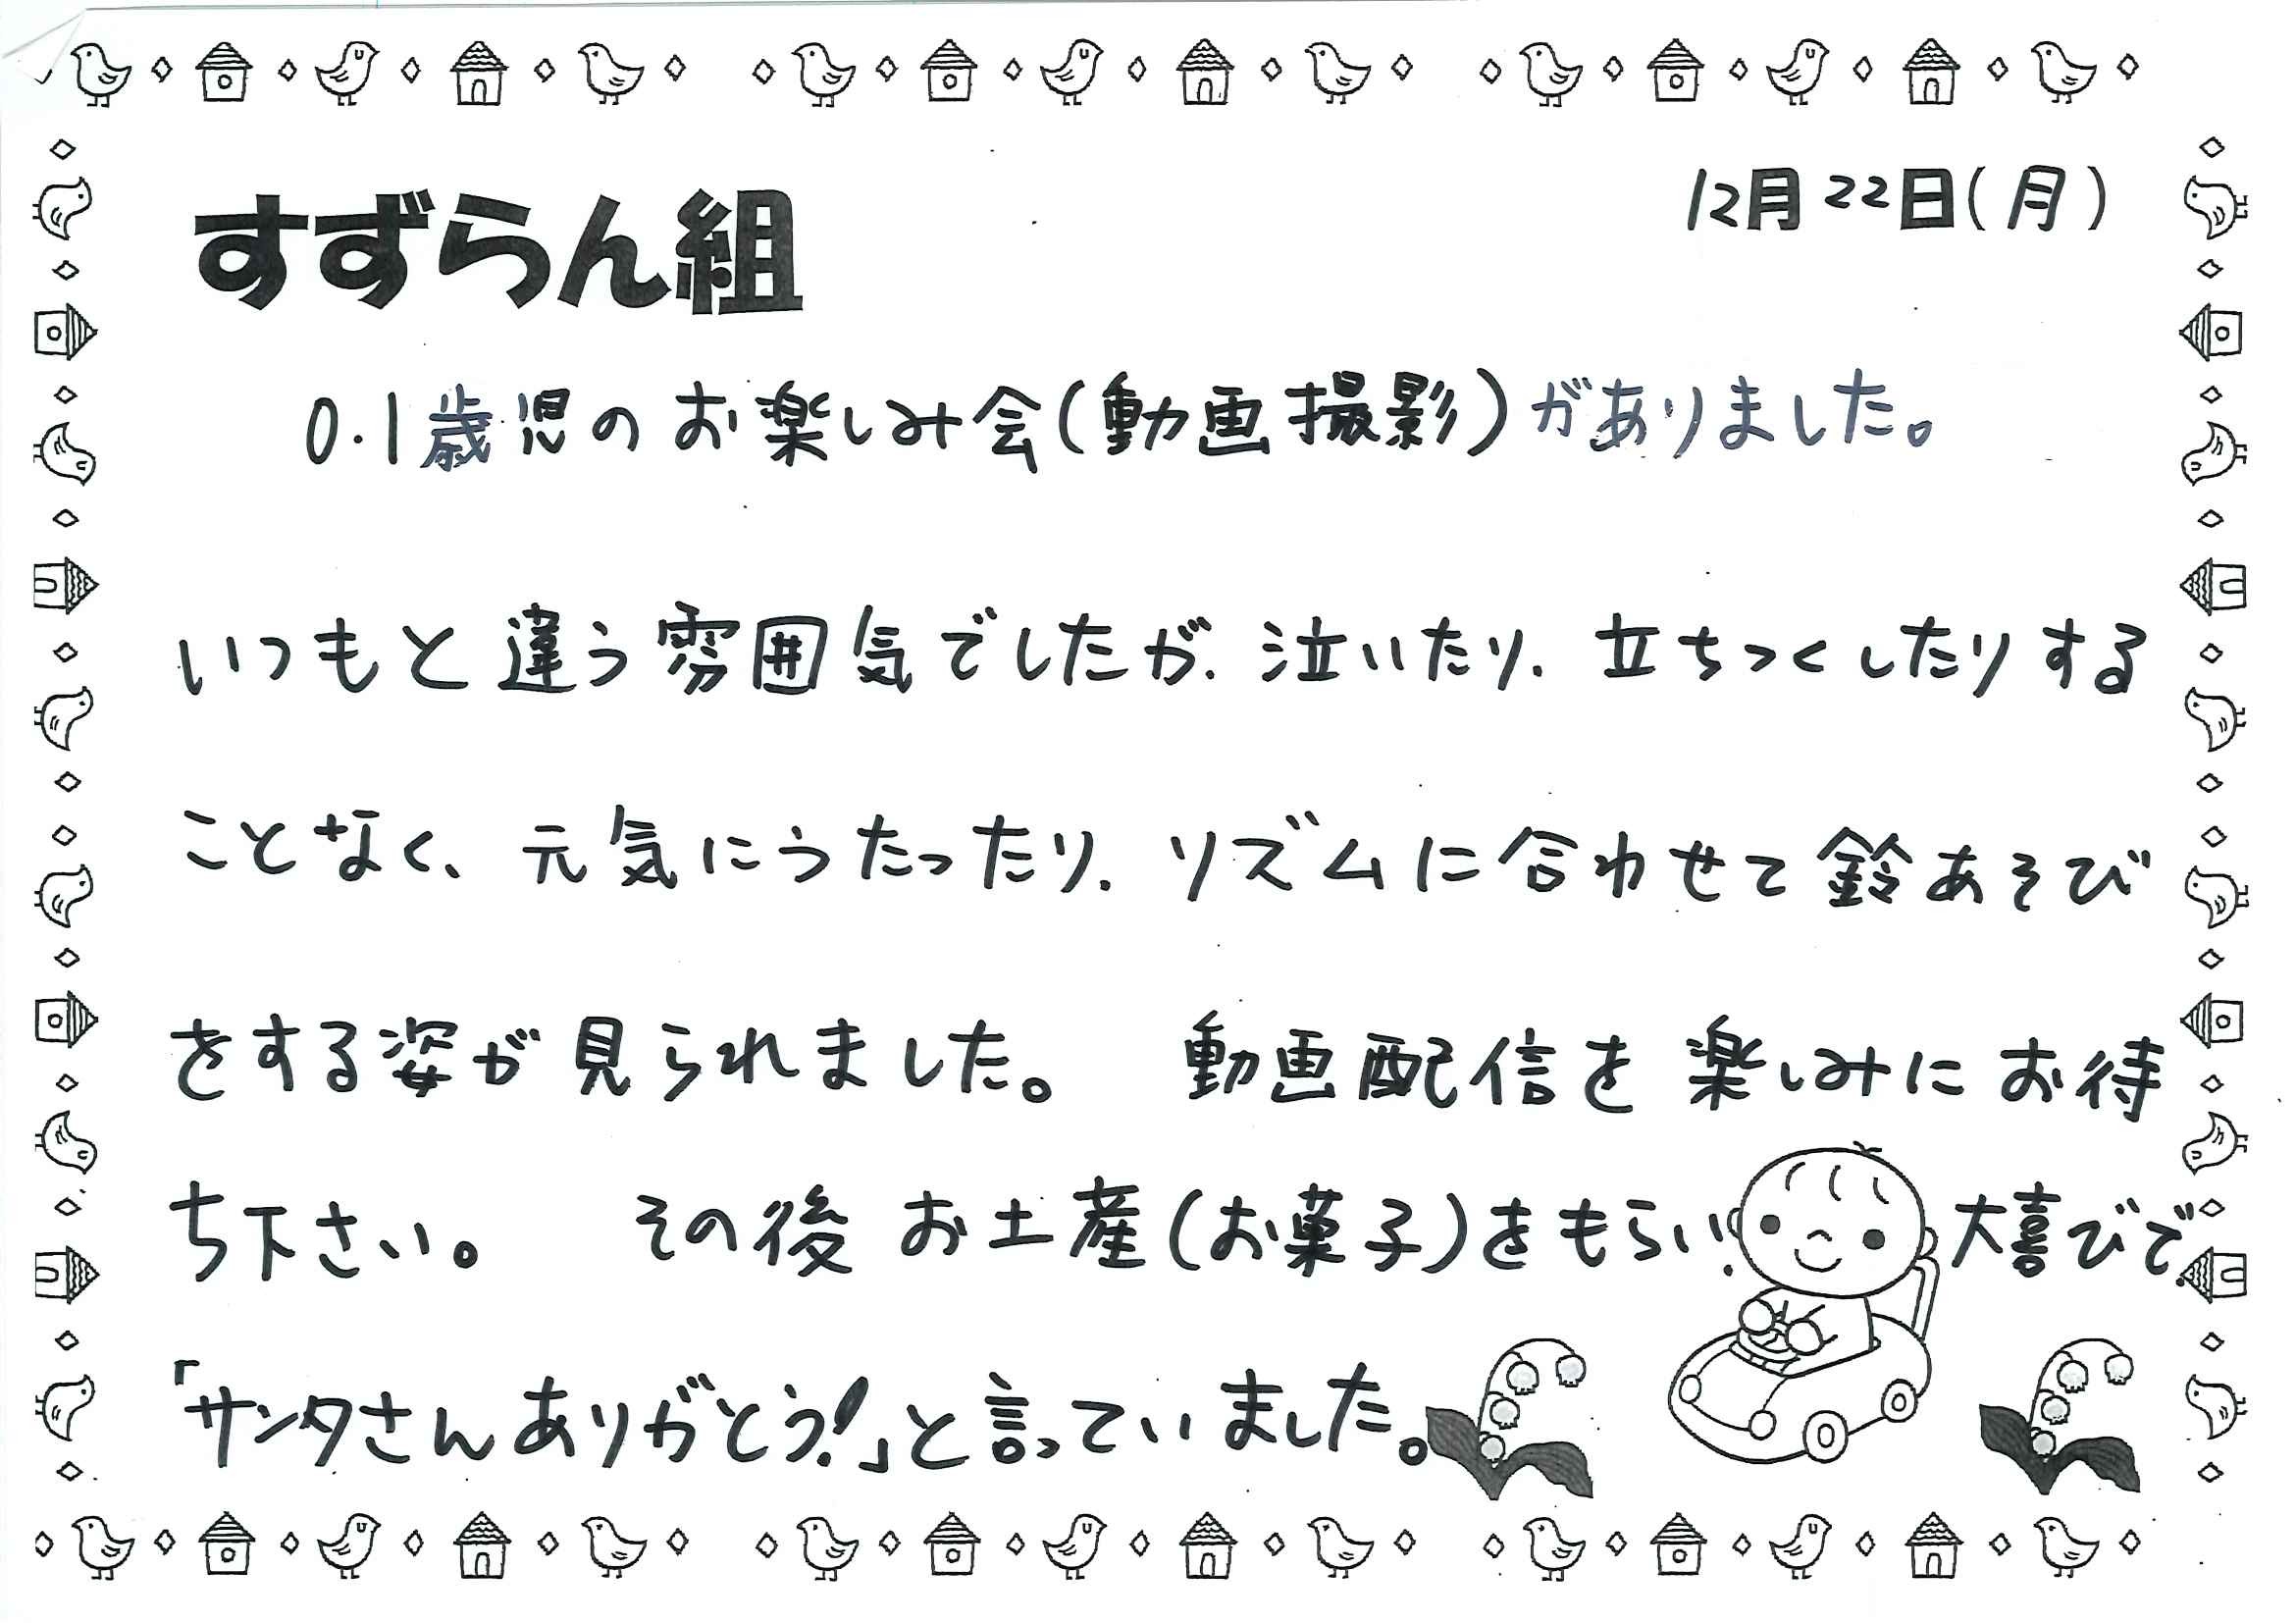 12月22日(月)
すずらん組
0.1歳児のお楽しみ会(動画撮影)がありました。
いつもと違う雰囲気でしたが、泣いたり、立ちつくしたりする
ことなく、元気にうたったり、リズムに合わせて鈴あそび
をする姿が見られました。 動画配信を楽しみにお待
ち下さい。 その後お土産(お菓子)をもらい、大喜びで、
「サンタさんありがとう!」と言っていました。